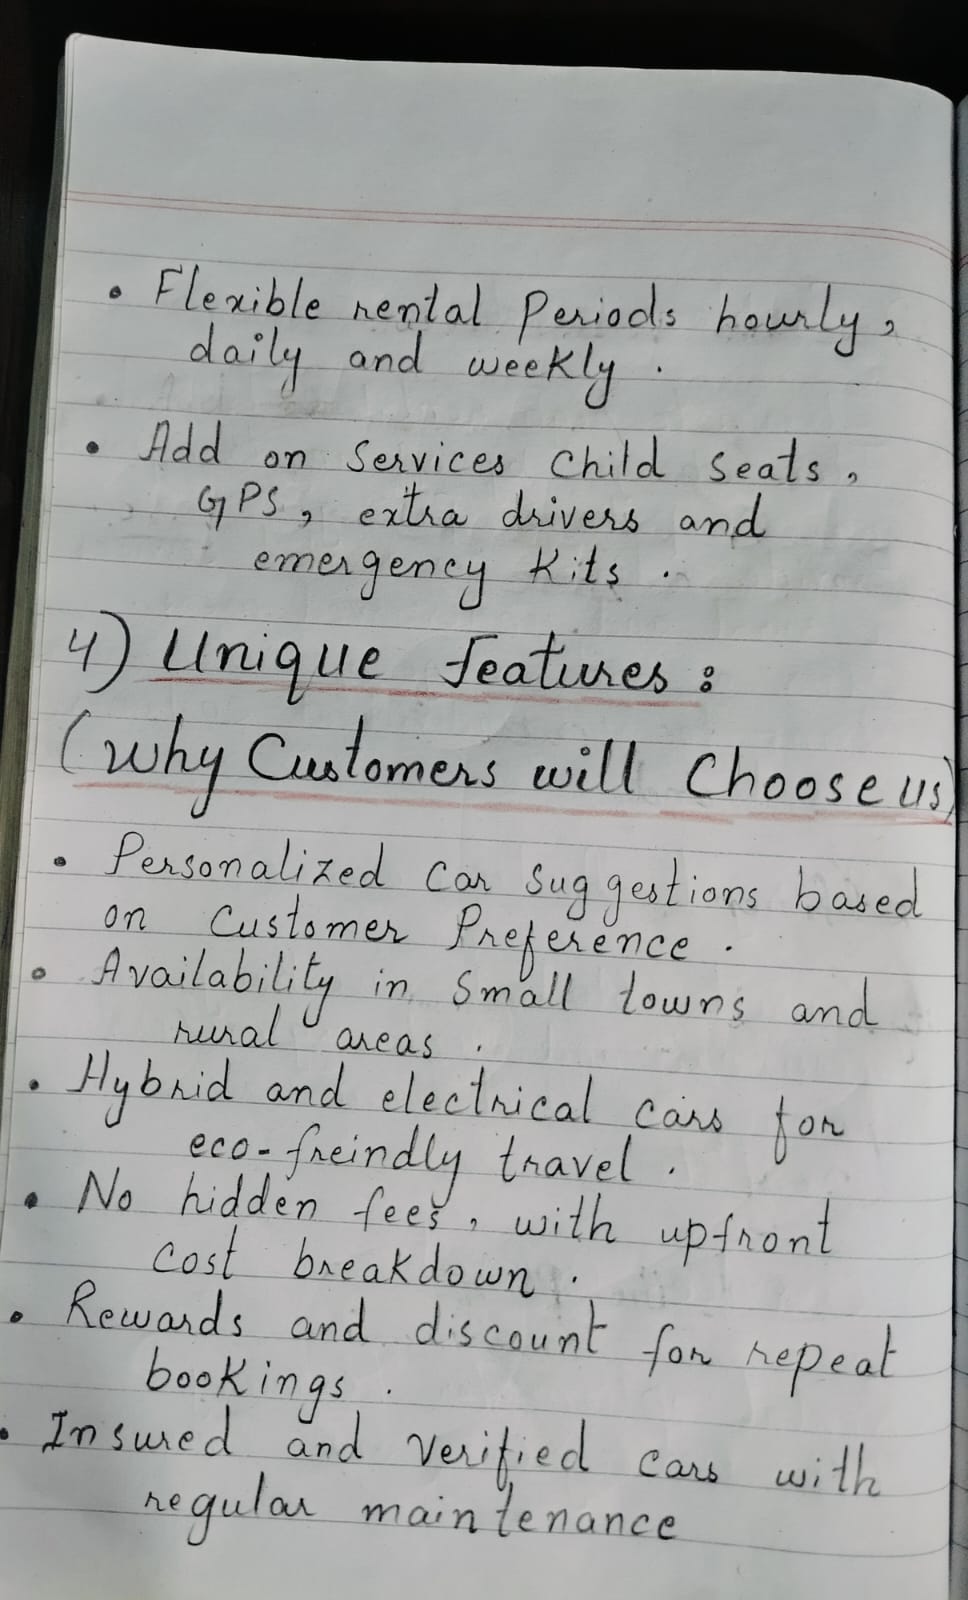 • Flexible rental Periods hourly,
daily and weekly .
• Add on Services Child Seats,
GPS, extra drivers and
emergency Kits .
4) Unique features :
(Why Customers will Choose us)
• Personalized Car Suggestions based
on Customer Preference .
• Availability in Small towns and
rural areas .
• Hybrid and electrical cars for
eco-freindly travel .
• No hidden fees, with upfront
cost breakdown .
• Rewards and discount for repeat
bookings .
• Insured and Verified cars with
regular maintenance